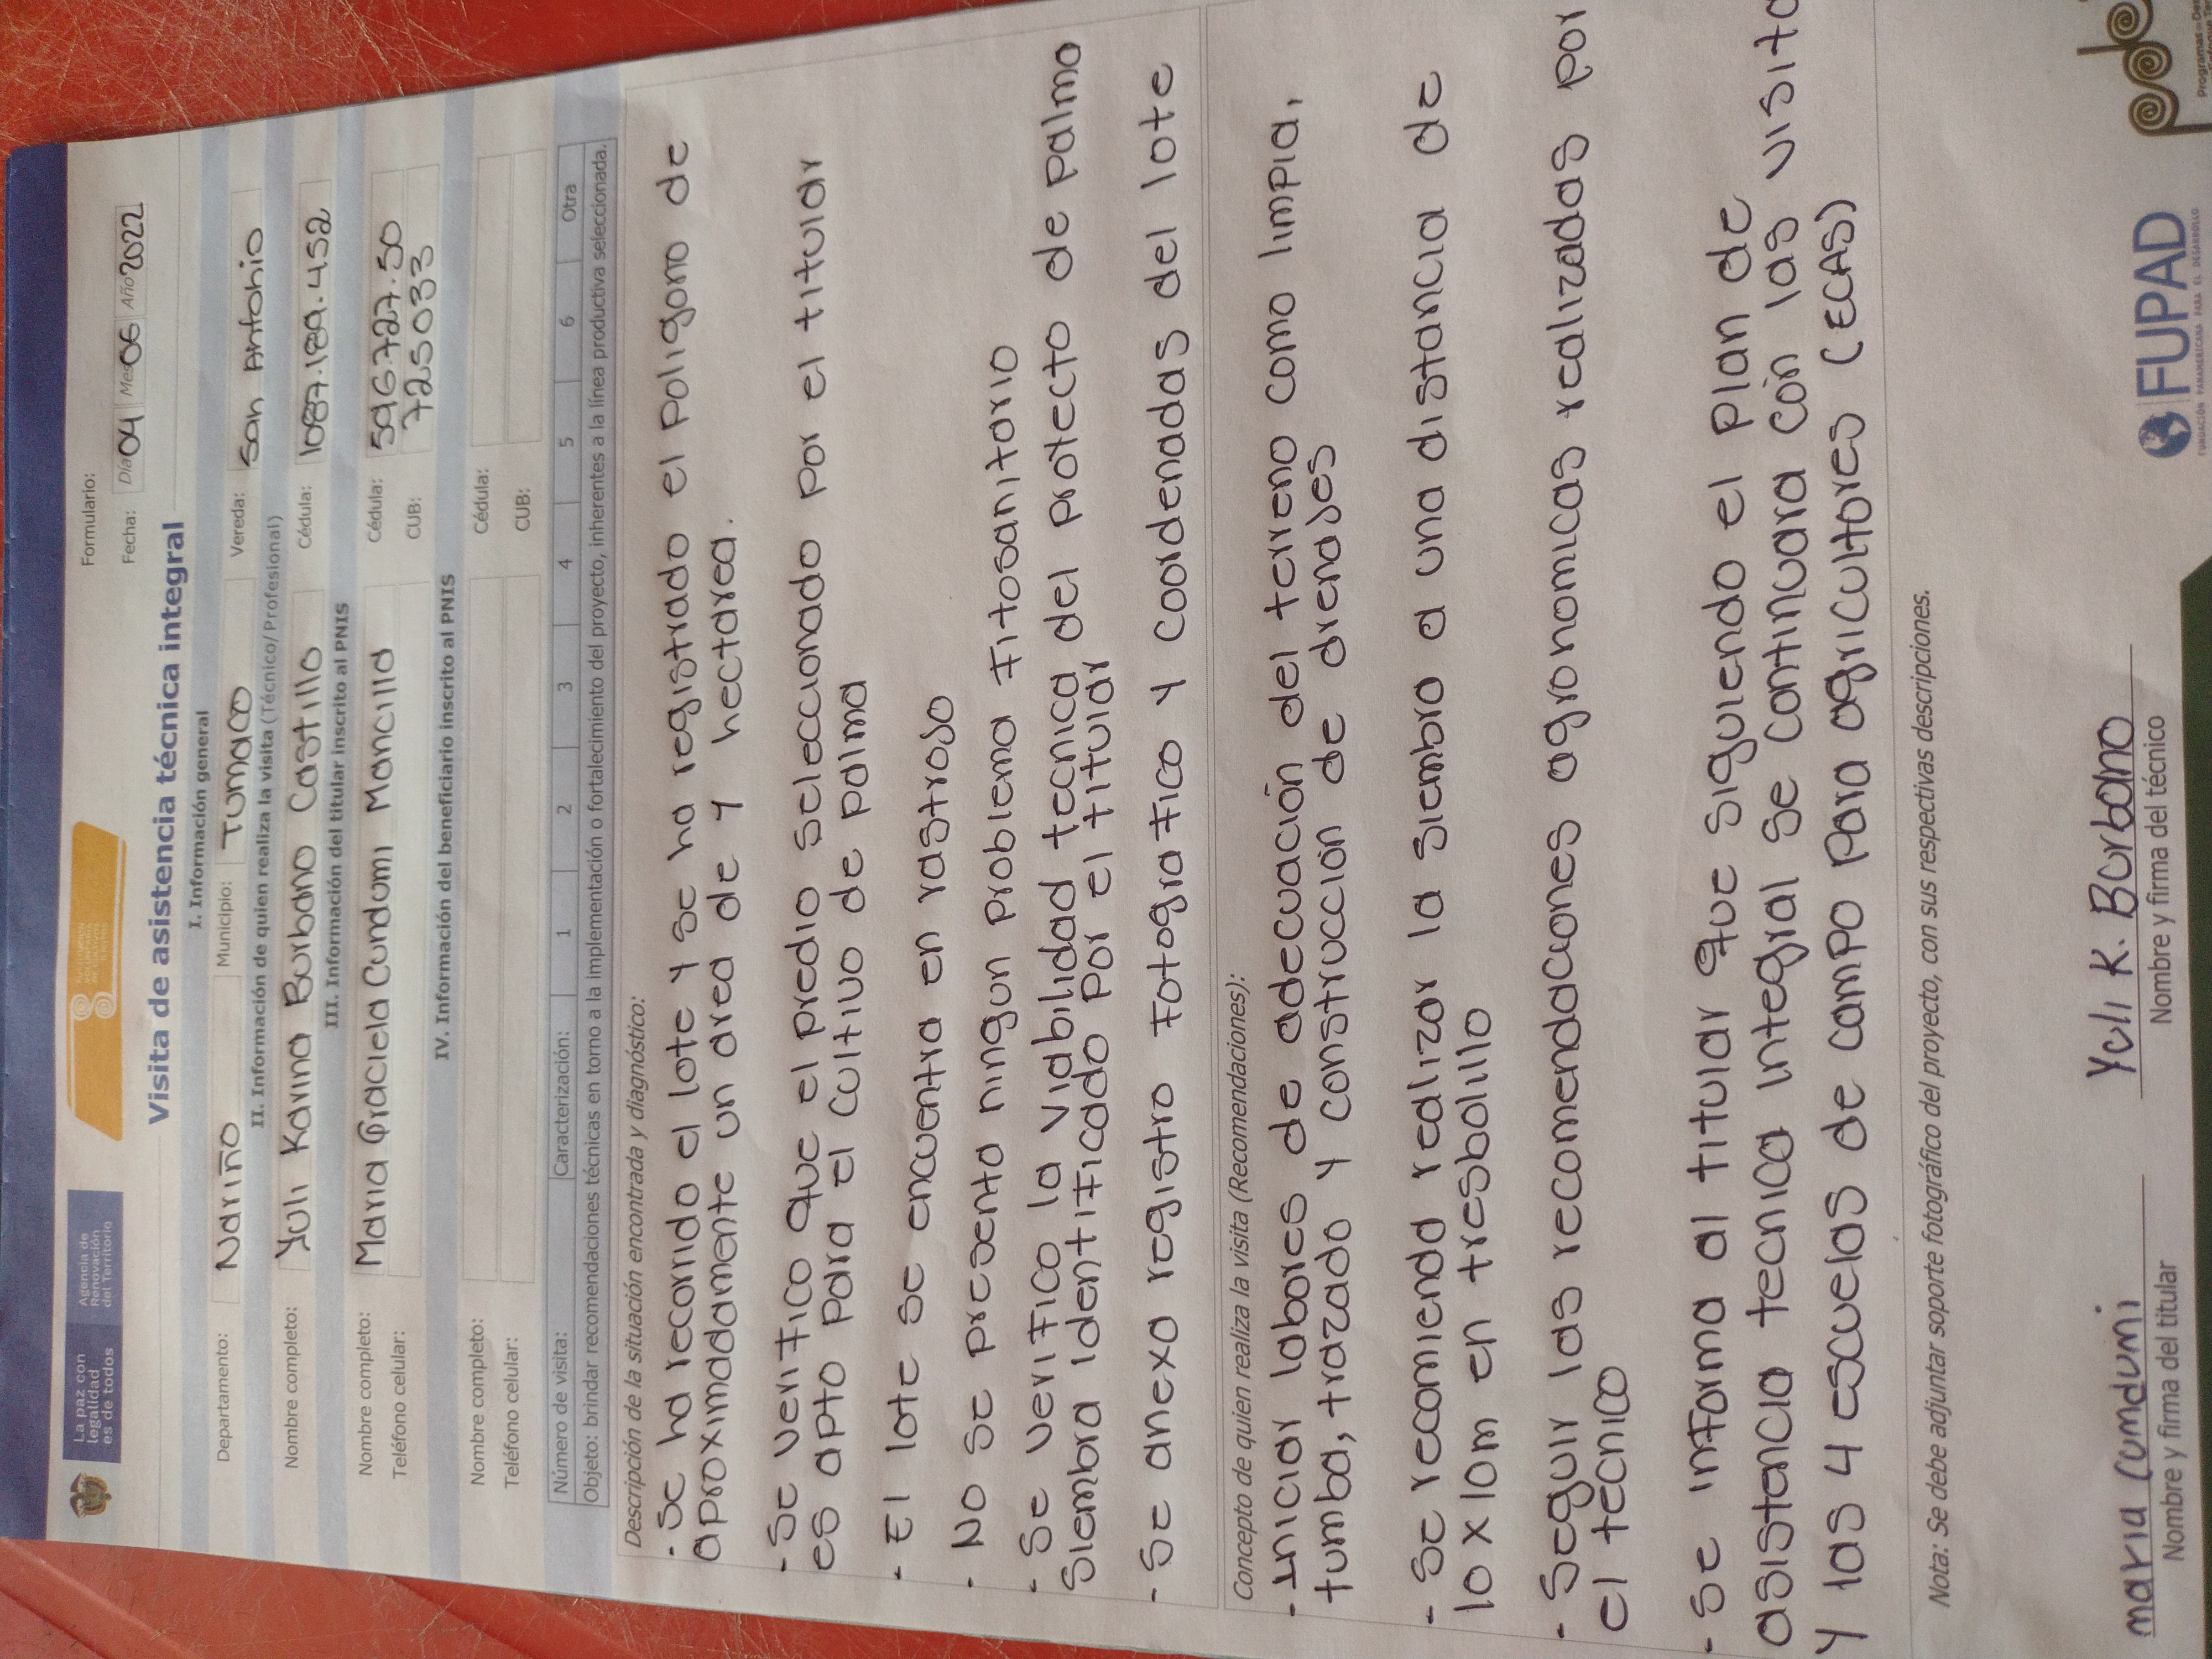 La paz con
legalidad
es de todos
Agencia de
Renovación
del Territorio
Formulario:
Fecha: Día 04 Mes 06 Año 2022
Visita de asistencia técnica integral
I. Información general
Departamento: Nariño Municipio: Tumaco Vereda: San Antonio
II. Información de quien realiza la visita (Técnico/Profesional)
Nombre completo: Yuli Karina Burbano Castillo Cédula: 1087.189.452
III. Información del titular inscrito al PNIS
Nombre completo: Maria Graciela Cundumi Mancilla Cédula: 596727.50
Teléfono celular: CUB: 725033
IV. Información del beneficiario inscrito al PNIS
Nombre completo: Cédula:
Teléfono celular: CUB:
Número de visita: Caracterización: 1 2 3 4 5 6 Otra
Objeto: brindar recomendaciones técnicas en torno a la implementación o fortalecimiento del proyecto, inherentes a la línea productiva seleccionada.
Descripción de la situación encontrada y diagnóstico:
- Se ha recorrido el lote y se ha registrado el poligono de
aproximadamente un area de 4 hectarea.
- Se verifico que el predio seleccionado por el titular
es apto para el cultivo de palma
- El lote se encuentra en rastrojo
- No se presenta ningun problema fitosanitario
- Se verifico la viabilidad tecnica del protecto de palma
siembra identificado por el titular
- Se anexa registro fotografico y coordenadas del lote
Concepto de quien realiza la visita (Recomendaciones):
- Iniciar labores de adecuación del terreno como limpia,
tumba, trazado y construcción de drenajes
- Se recomienda realizar la siembra a una distancia de
10 x 10m en tresbolillo
- Seguir las recomendaciones agronomicas realizadas por
el tecnico
- Se informa al titular que siguiendo el plan de
asistencia tecnica integral se continuara con las visita
y las 4 escuelas de campo para agricultores (ECAS)
Nota: Se debe adjuntar soporte fotográfico del proyecto, con sus respectivas descripciones.
maria Cumdumi
Nombre y firma del titular
Yuli K. Burbano
Nombre y firma del técnico
FUPAD
FUNDACIÓN PANAMERICANA PARA EL DESARROLLO